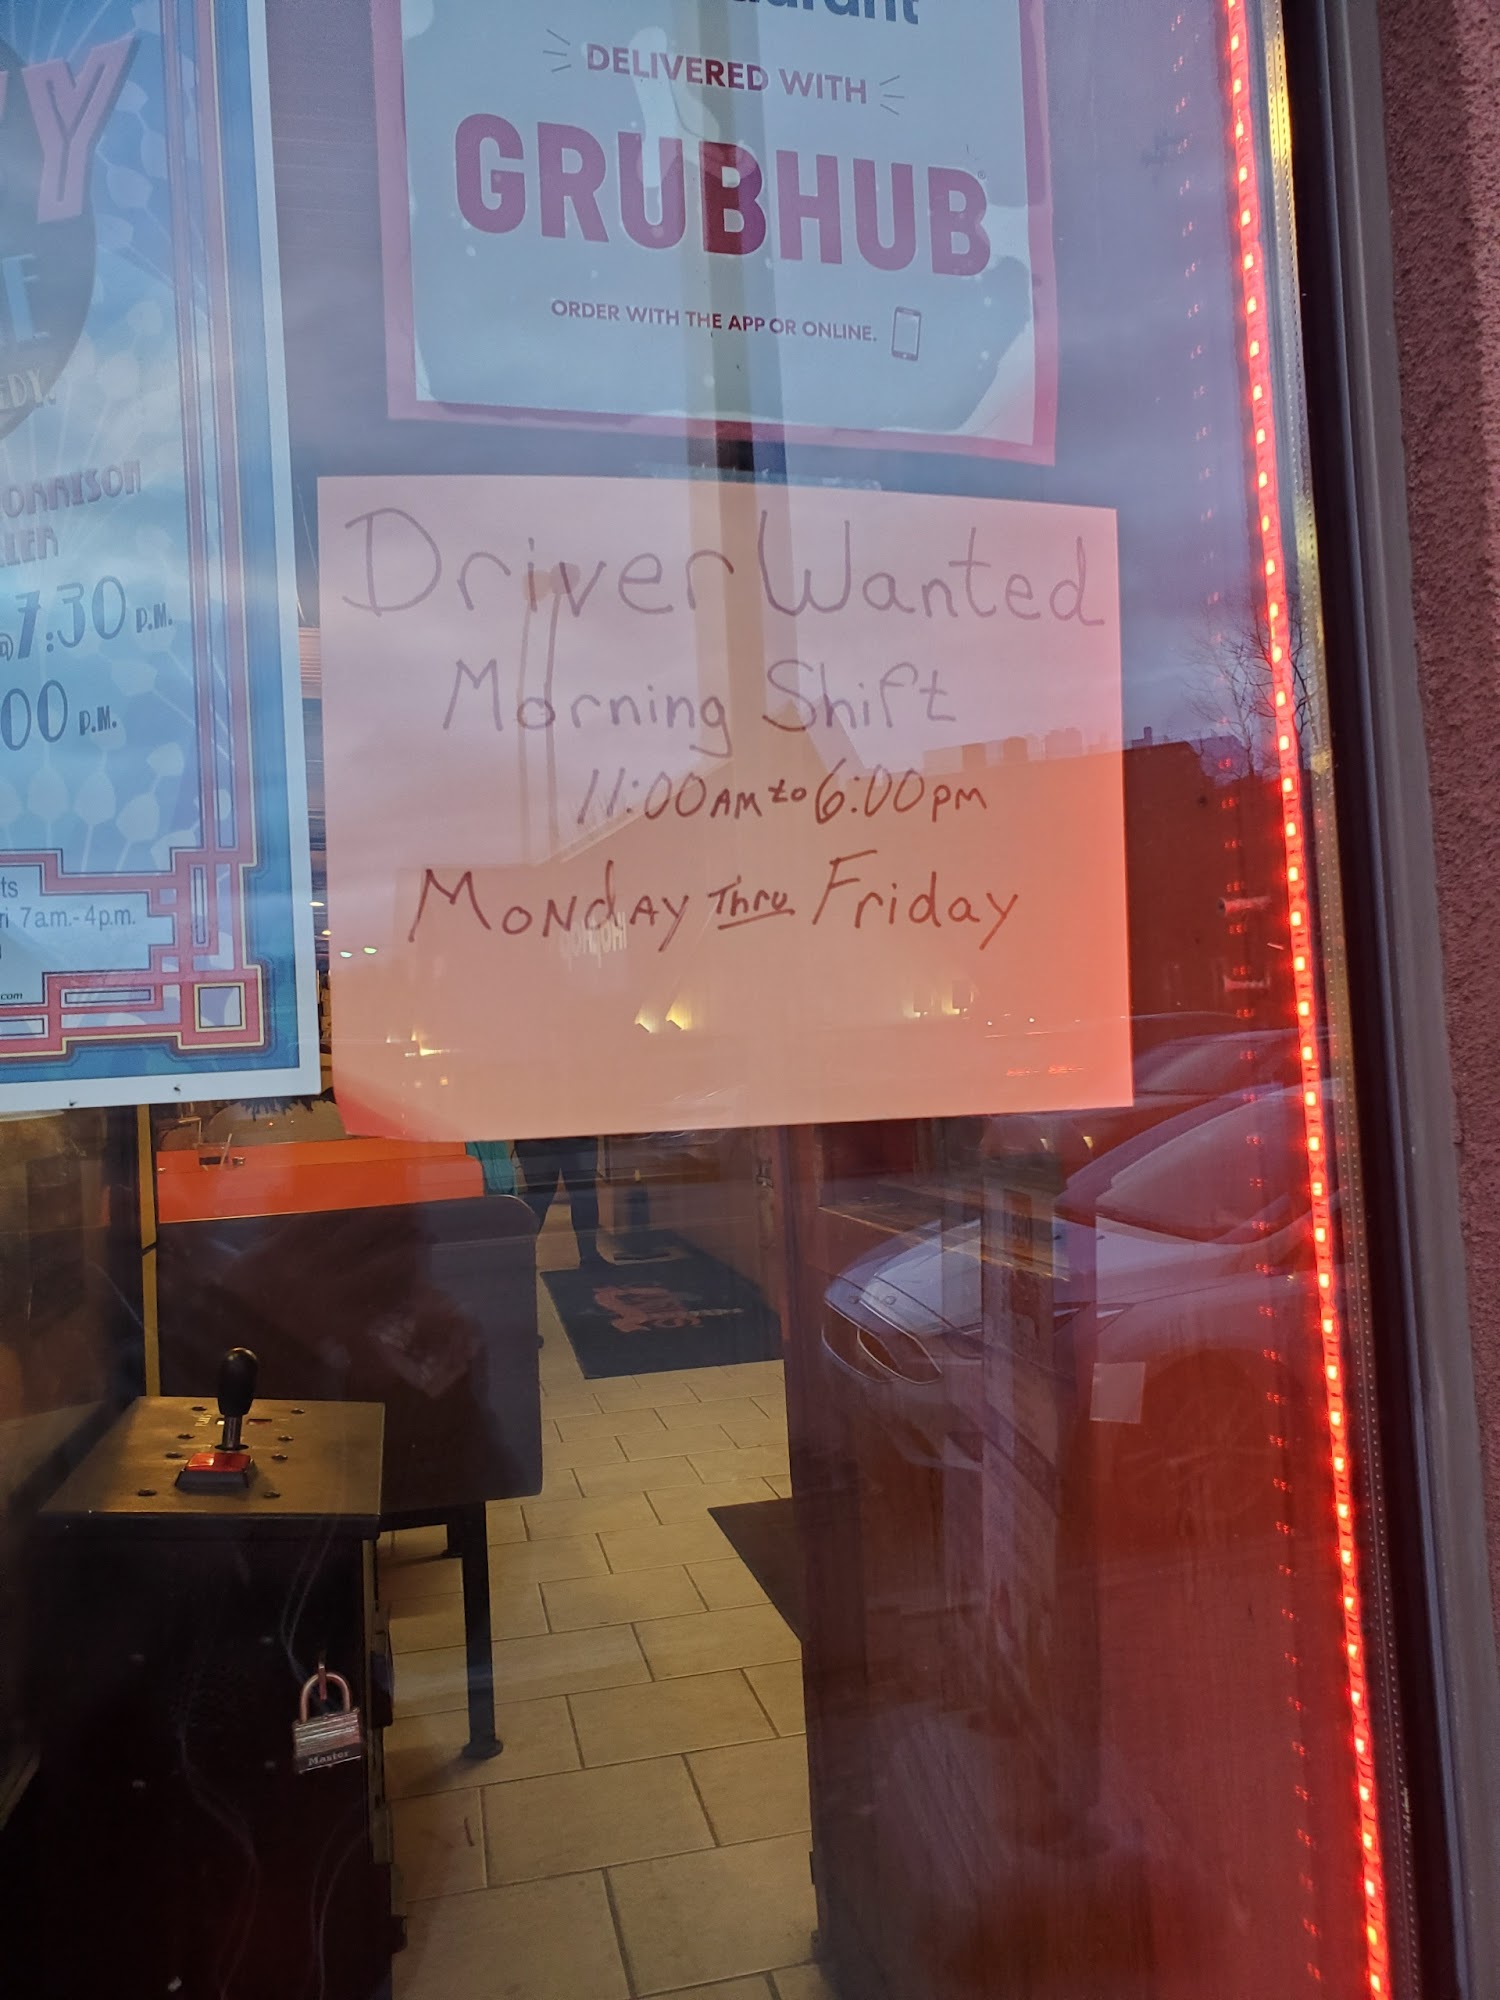 DELIVERED WITH
GRUBHUB
ORDER WITH THE APP OR ONLINE.
Driver Wanted
Morning Shift
11:00AM to 6:00PM
Monday Thru Friday
@7:30 P.M.
00 P.M.
7am.-4p.m.
.com
Master